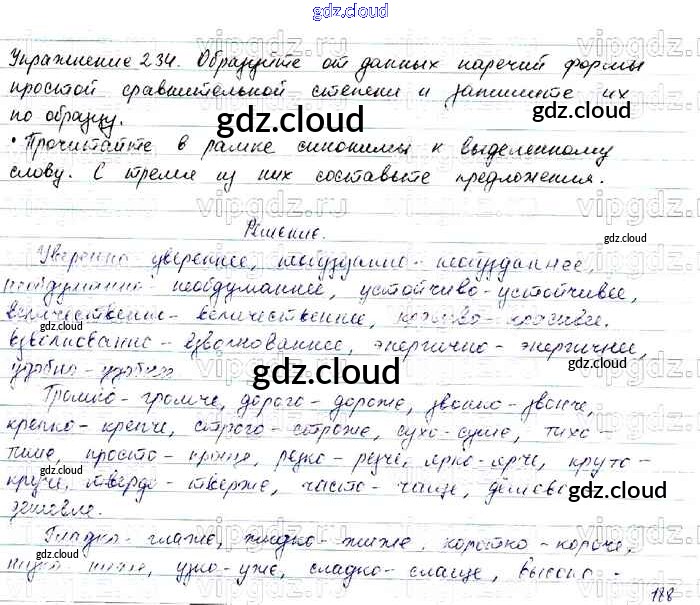 gdz.cloud
Упражнение 234. Образуйте от данных наречий формы
простой сравнительной степени и запишите их
по образцу.
• Прочитайте в рамке синонимы к выделенному
слову. С тремя из них составьте предложения.
Решение.
Уверенно увереннее, необузданно - необузданнее,
необдуманно - необдуманнее, устойчиво - устойчивее,
величественно - величественнее, красиво - красивее.
взволнованно - взволнованнее, энергично - энергичнее,
удобно - удобнее
Громко - громче, дорого - дороже, звонко - звонче,
крепко - крепче, строго - строже, сухо - суше, тихо -
тише, просто - проще, резко - резче, ярко - ярче, круто -
круче, твердо - тверже, часто - чаще, дешево
дешевле.
Гладко - глаже, жидко - жиже, коротко - короче,
низко ниже, узко - уже, сладко - слаще, высоко -
188